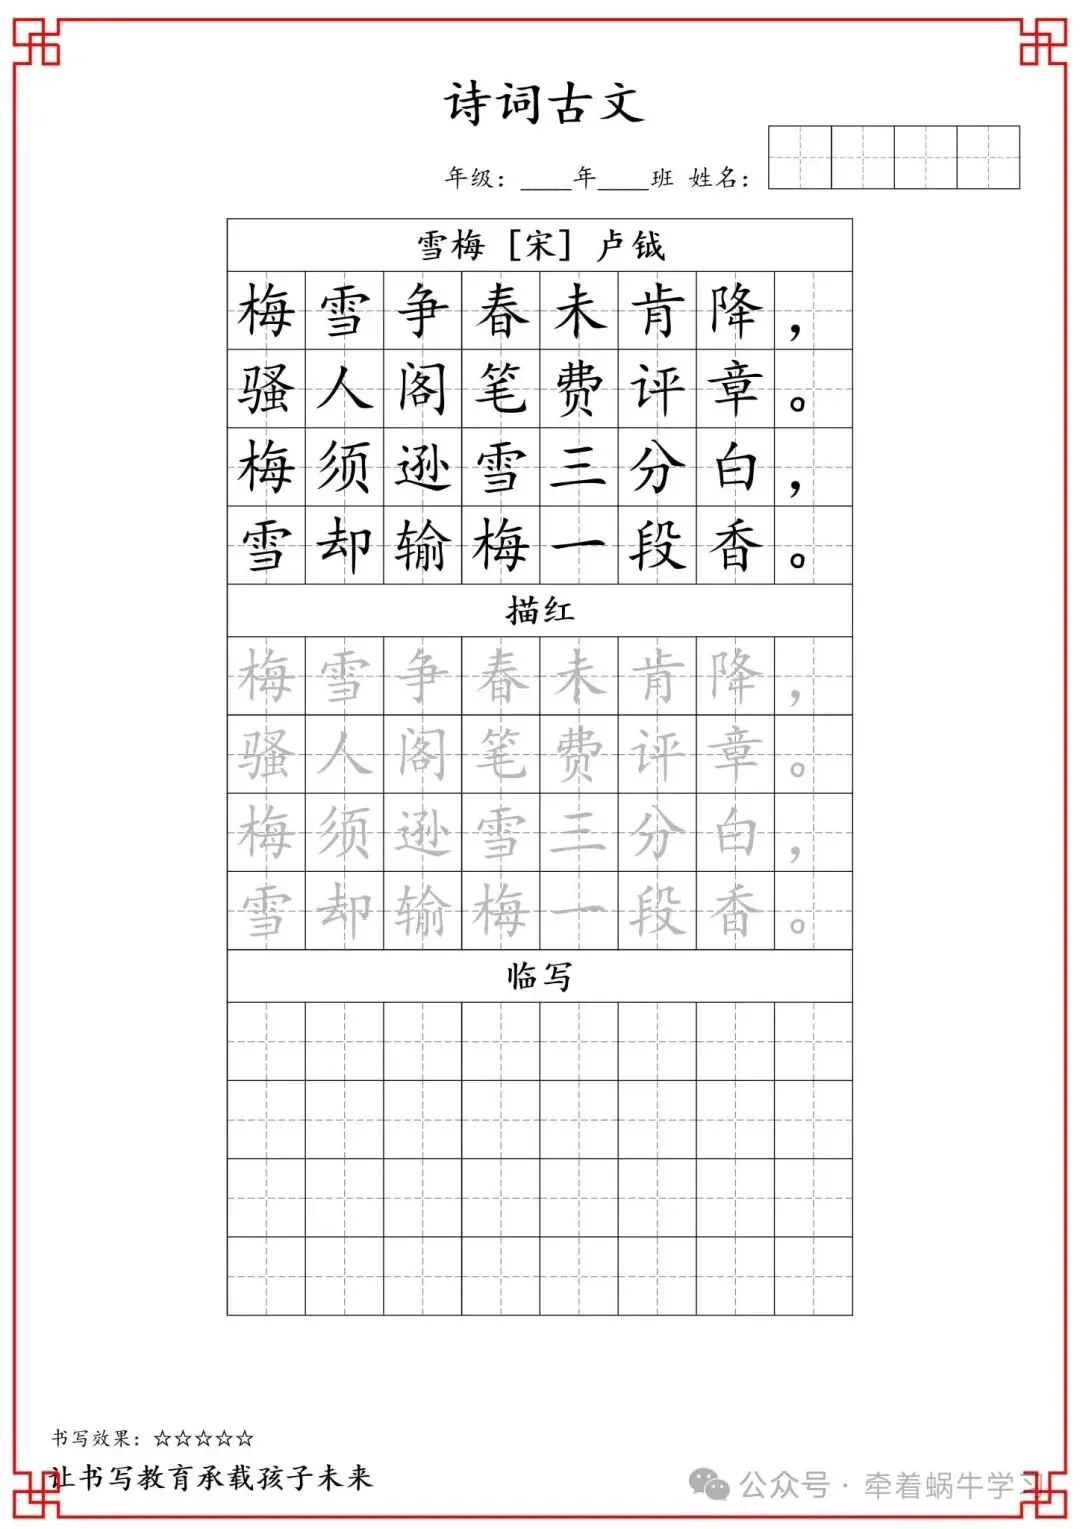 诗词古文
年级：____年____班 姓名：
雪梅［宋］卢钺
梅雪争春未肯降，
骚人阁笔费评章。
梅须逊雪三分白，
雪却输梅一段香。
描红
梅雪争春未肯降，
骚人阁笔费评章。
梅须逊雪三分白，
雪却输梅一段香。
临写
书写效果：☆☆☆☆☆
让书写教育承载孩子未来
公众号·牵着蜗牛学习